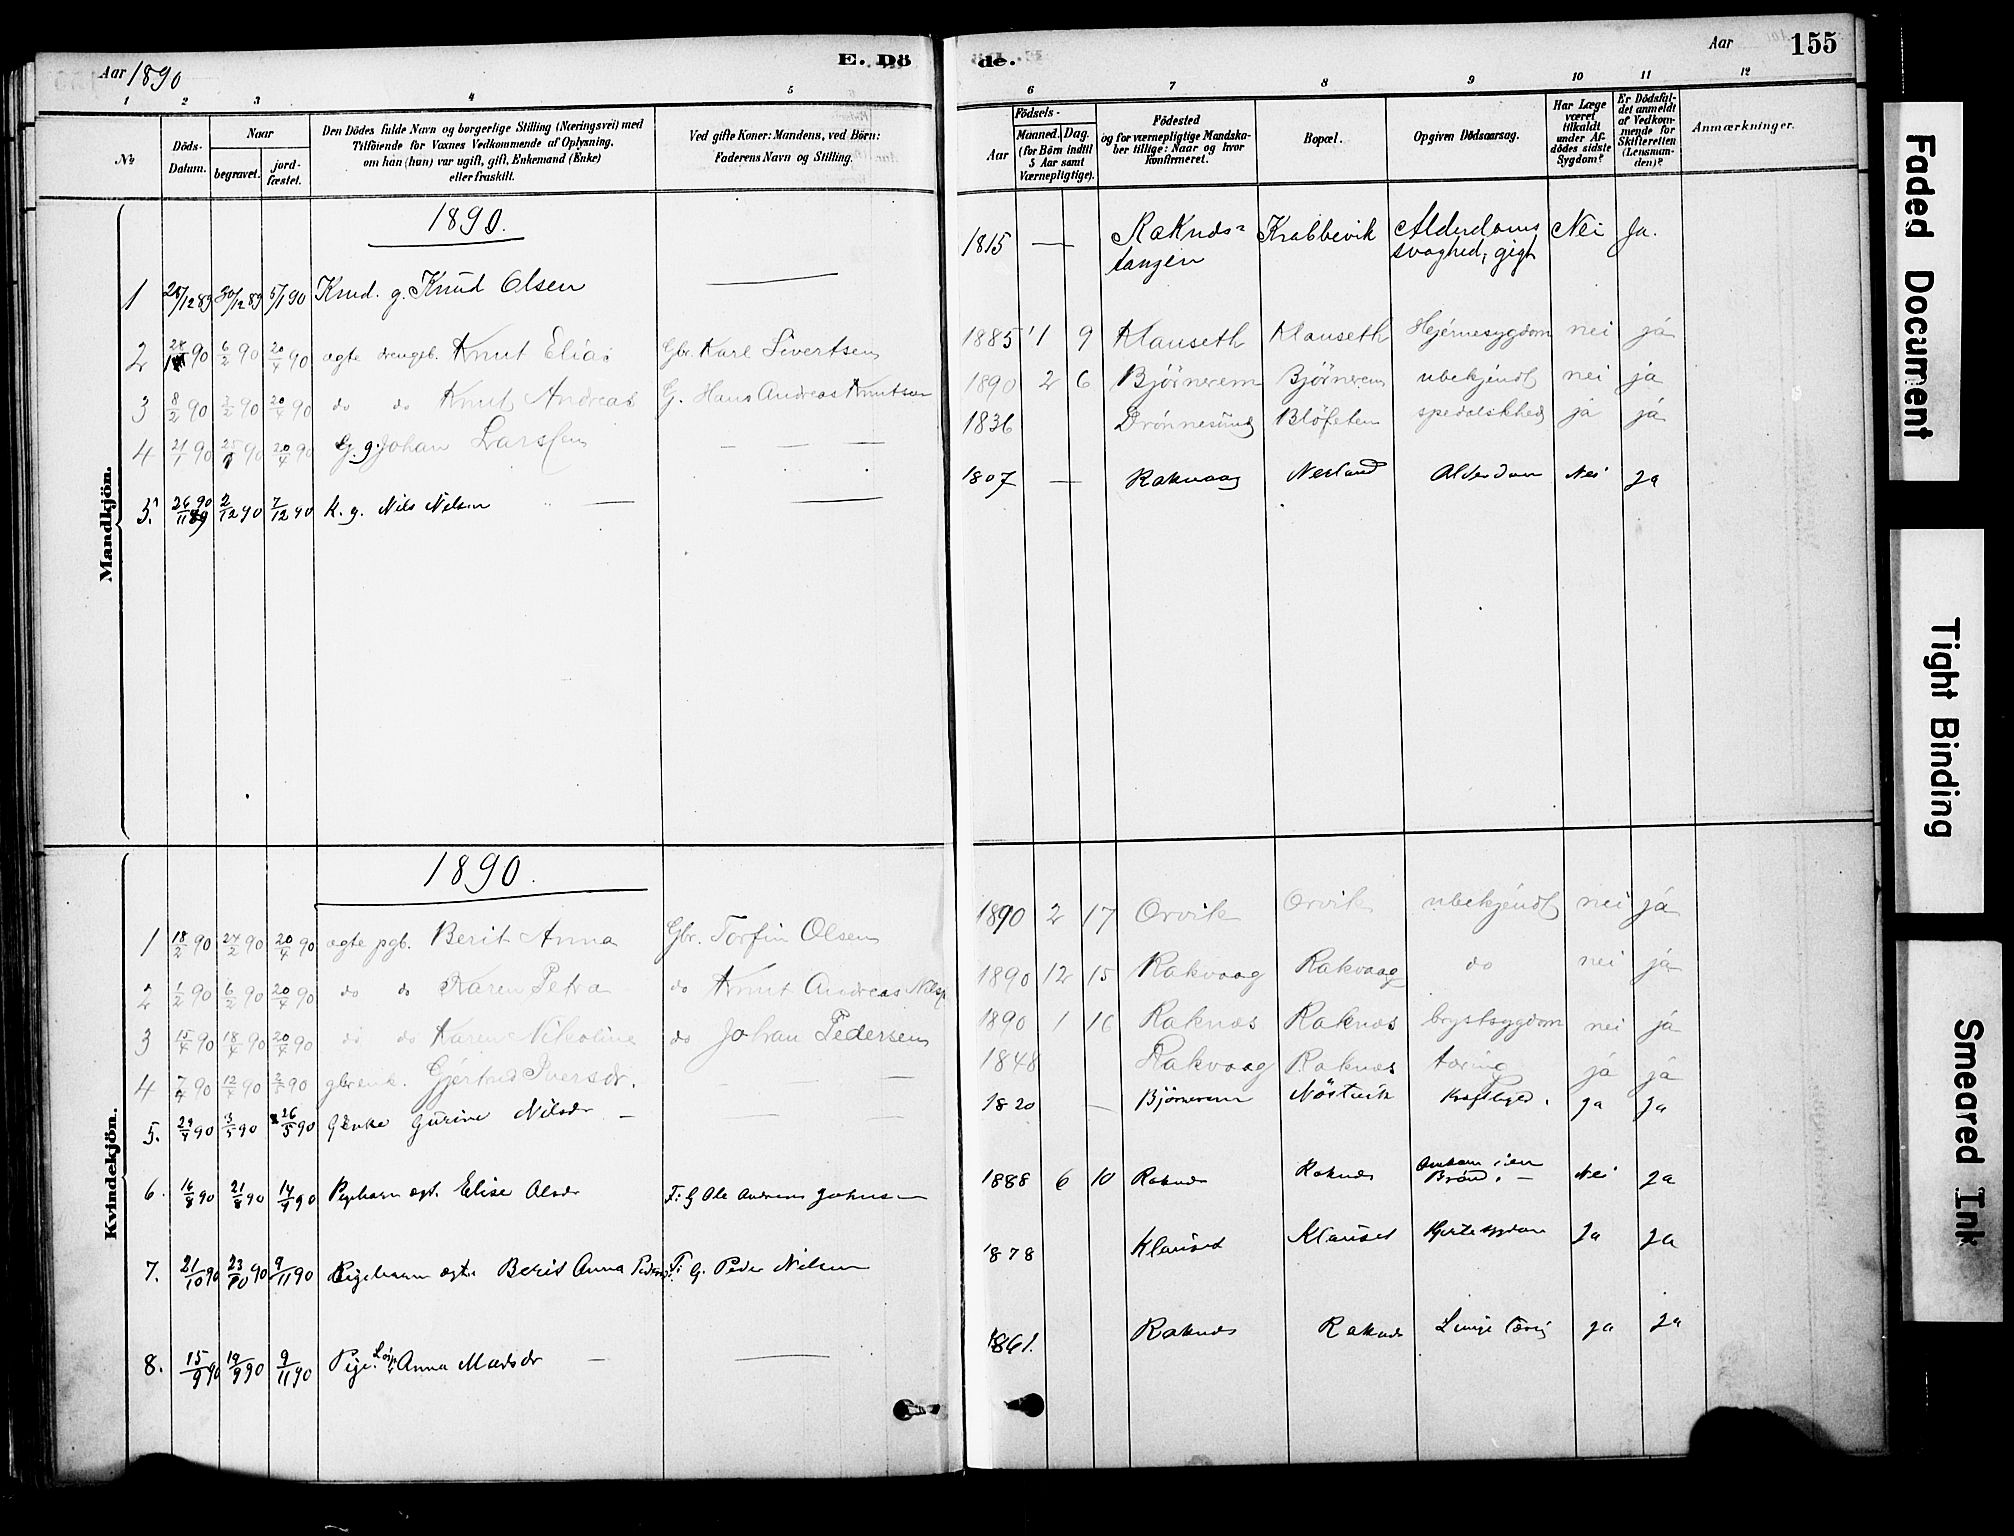 Aar 1890
E. Dö de.
Aar 155
1 2 3 4 5 6 7 8 9 10 11 12
№
Döds-Datum.
Naar
begravet.
jord-fæstet.
Den Dödes fulde Navn og borgerlige Stilling (Næringsvei) med
Tilföiende for Voxnes Vedkommende af Oplysning,
om han (hun) var ugift, gift, Enkemand (Enke)
eller fraskilt.
Ved gifte Koner: Mandens, ved Börn:
Faderens Navn og Stilling.
Födsels-
Aar
Maaned. Dag.
(for Börn indtil
5 Aar samt
Værnepligtige).
Födested
og for værnepligtige Mandska-
ber tillige: Naar og hvor
konfirmeret.
Bopæl.
Opgiven Dödsaarsag.
Har Læge
været
tilkaldt
under Af-
dödes sidste
Sygdom?
Er Dödsfal-
det anmeldt
af Vedkom-
mende for
Skifteretten
(Lensman-
den)?
Anmærkninger.
Mandkjön.
1890.
1 28/12 89 30/12 89 5/1 90 Knud. g. Knud Olsen — 1815 — Raknæs-tangen Krabbevik Alderdoms svaghed, gigt Nei Ja.
2 90 6/2 90 20/4 90 ægte drengeb. Knut Elias Gbr. Karl Sivertsen 1885 1 9 Klauseth Klauseth Hjérnesygdom nei já
3 8/2 90 90 20/4 90 do do Knut Andreas G. Hans Andreas Knutsen 1890 2 6 Björnerem Björnerem ubekjendt nei ja
4 21/1 90 25/1 90 20/4 90 G. g. Johan Larssen — — — 1836 Drönnesund Blöfeten spedalskhed já já
5. 26/11 90 2/12 90 7/12 90 K. g. Nils Nilsen — — 1807 — Rakvaag Nesland Alderdom Nei Ja
Kvindekjön.
1890.
1 18/2 90 24/2 90 20/4 90 ægte pgb. Berit Anna Gbr. Torfin Olsen 1890 2 17 Orvik Orvik ubekjendt nei já
2 1/2 90 6/2 90 20/4 90 do do Karen Petra do Knut Andreas Nils 1890 12 15 Rakvaag Rakvaag do nei já
3 15/4 90 18/4 90 20/4 90 do do Karen Nikoline do Johan Pedersen 1890 1 16 Raknæs Raknæs brystsygdom nei já
4 7/4 90 12/4 90 2/5 90 gbrenk. Gjertrud Iversdr. — — 1848 Rakvaag Raknæs tæring já já
5. 29/4 90 3/5 90 26/5 90 G enke Gurine Nilsdr — — — 1820 — Björnerem Nöstvik Ja Ja
6. 16/8 90 21/8 90 14/9 90 Pigebarn ægt. Elise Olsdr F: G Ole Andreas Johnsen 1888 6 10 Raknæs Raknæs Omkom i en Brönd. — Nei Ja
7. 21/10 90 23/10 90 9/11 90 Pigebarn ægte Berit Anna Pedersd F: G. Peder Nilsen 1878 Klauset Klauset Hjertesygdom Ja Ja
8. 15/9 90 19/9 90 9/11 90 Pige. Anna Madsdr — — 1861. Raknæs Raknæs Lunge Ja Ja
Faded Document
Tight Binding
Smeared Ink